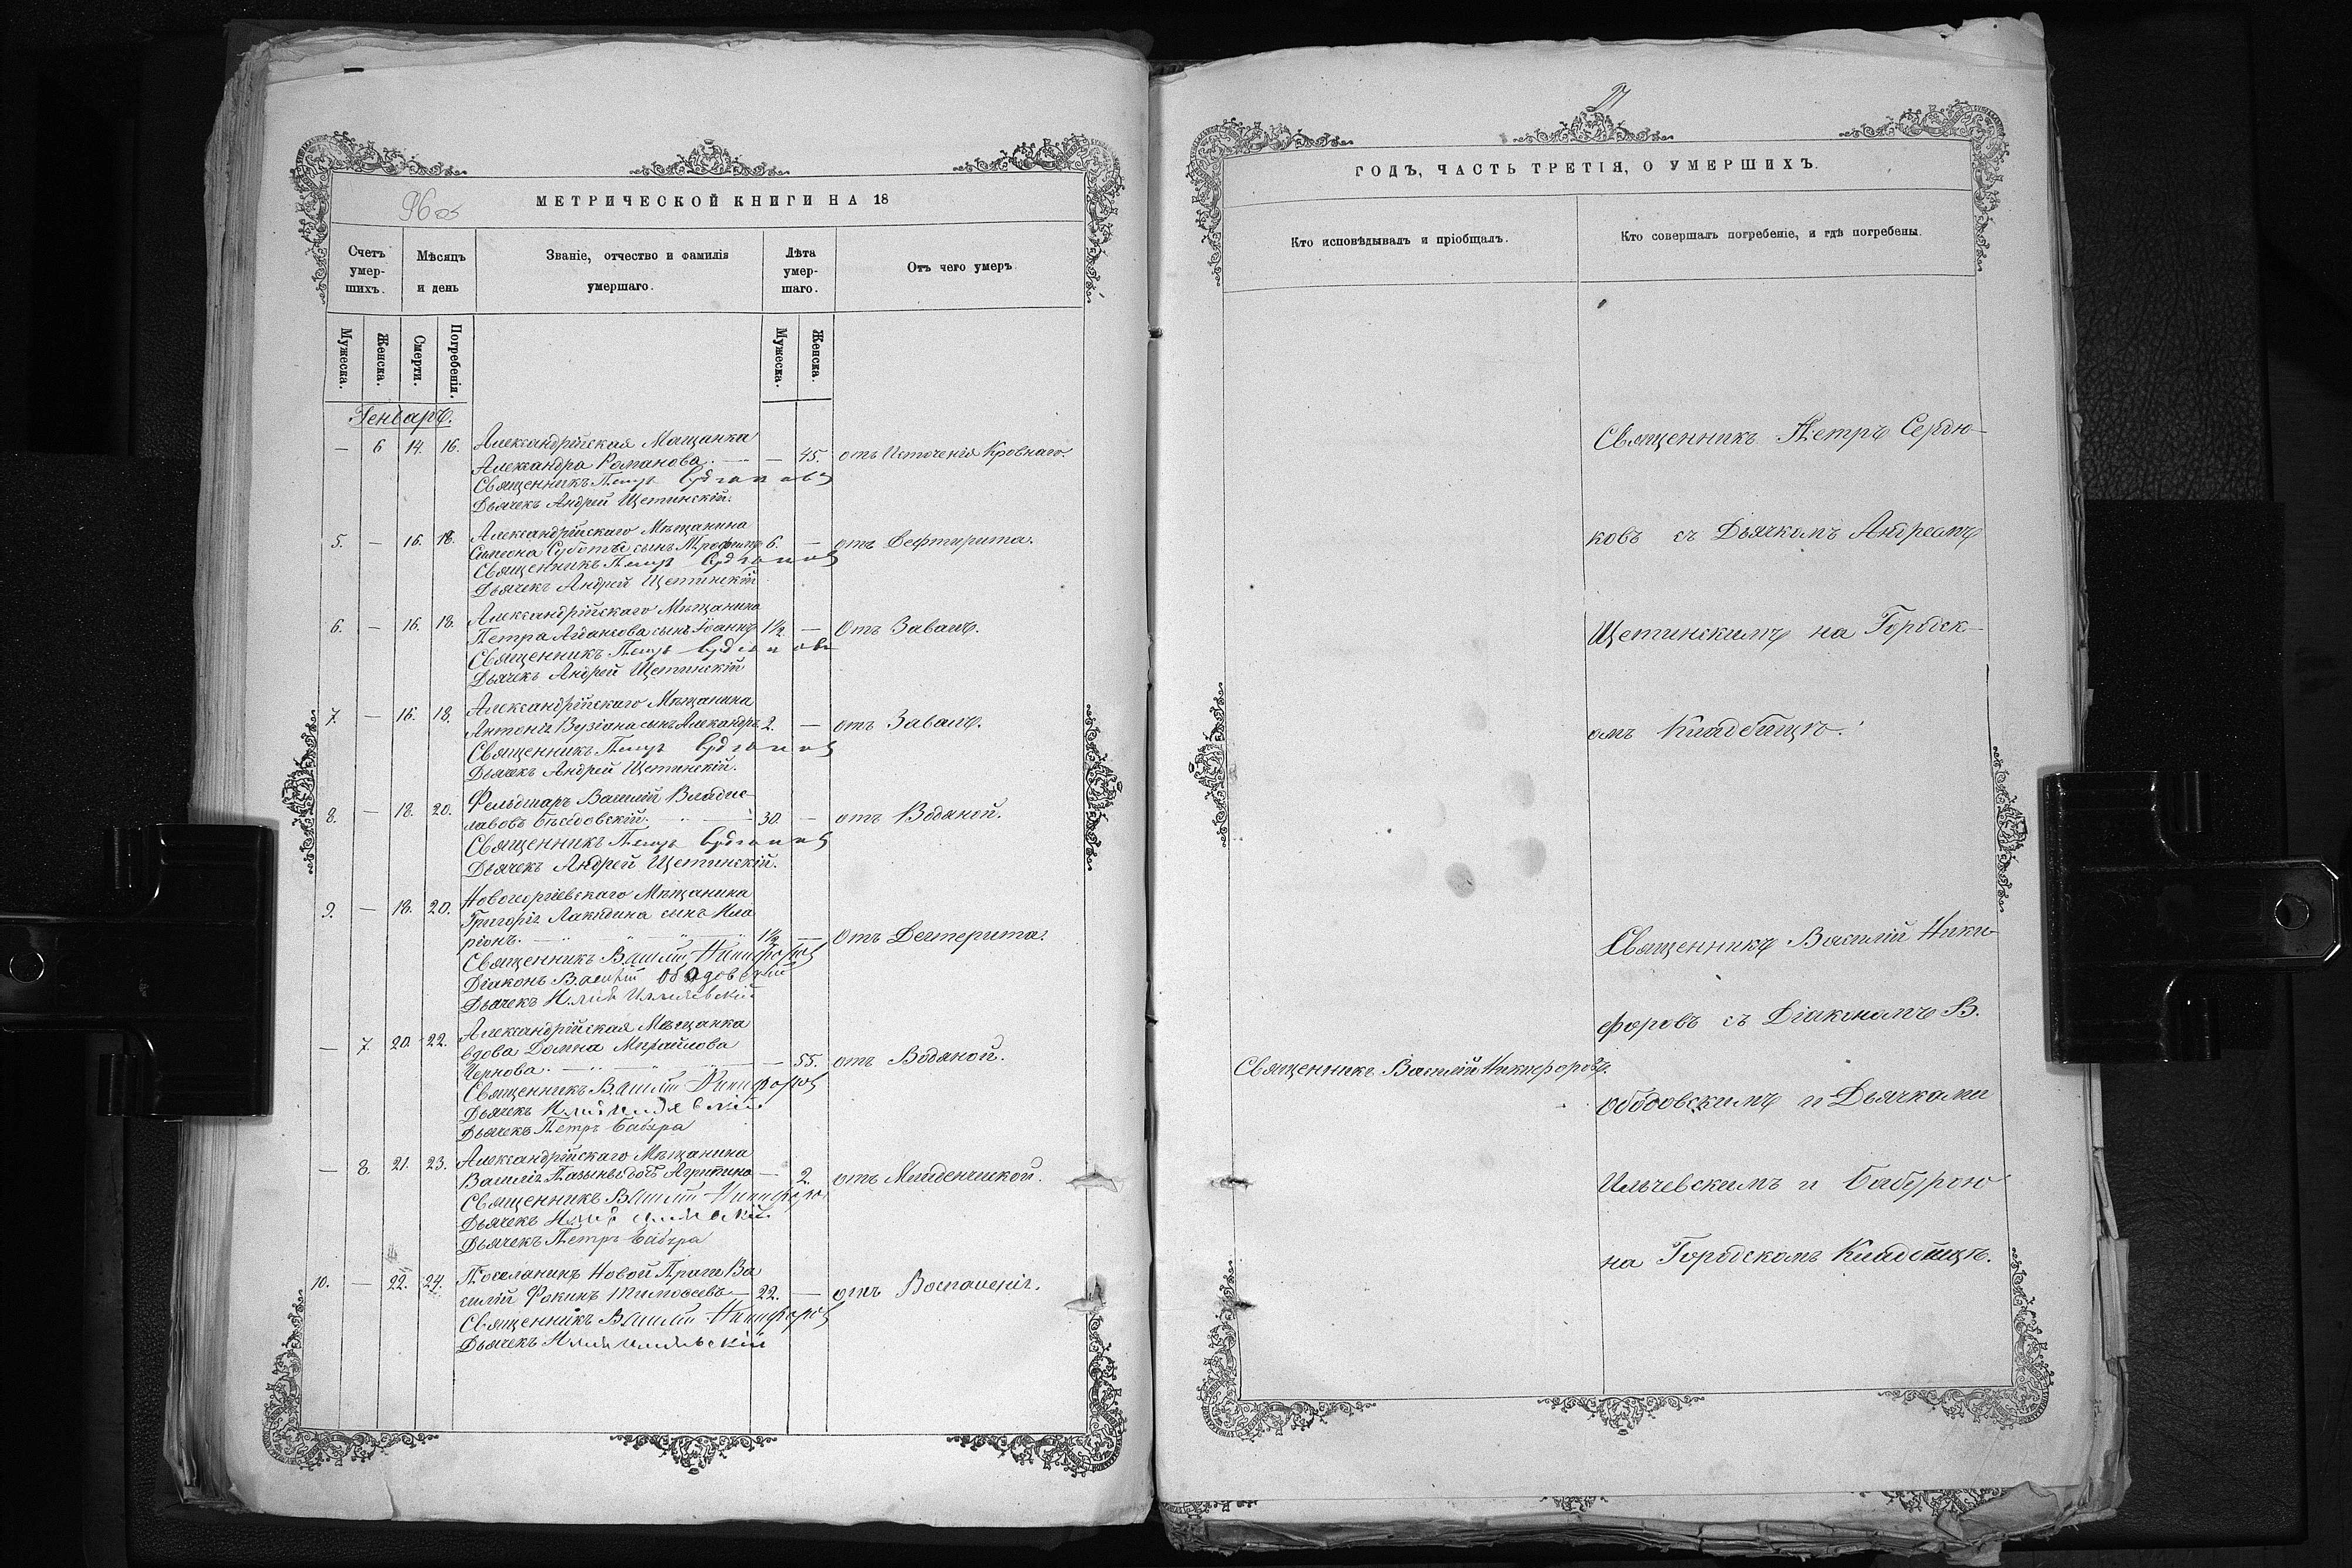 96 об
МЕТРИЧЕСКОЙ КНИГИ НА 18
Счетъ умер-шихъ.
Мѣсяцъ и день
Званіе, отчество и фамилія умершаго.
Лѣта умер-шаго.
Отъ чего умеръ
Мужеска.
Женска.
Смерти.
Погребенія.
Мужеска.
Женска.
Генварь.
— 6 14. 16. Александрійская Мѣщанка
Александра Романова. — — 45. отъ Истеченія Кровнаго.
Священникъ Петръ Сердюковъ
Дьячекъ Андрей Щетинскій.
5. — 16. 18. Александрійскаго Мѣщанина
Симеона сынъ Трофимъ 6. — отъ Дефтирита.
Священникъ Петръ Сердюковъ
Дьячекъ Андрей Щетинскій
6. — 16. 18. Александрійскаго Мѣщанина
Петра сынъ Іоаннъ 1½ — Отъ Завалъ.
Священникъ Петръ Сердюковъ
Дьячекъ Андрей Щетинскій
7. — 16. 18. Александрійскаго Мѣщанина
Антонія сынъ Александръ 2. — отъ Завалъ.
Священникъ Петръ Сердюковъ
Дьячекъ Андрей Щетинскій.
8. — 18. 20. Фельдшеръ Василій Владис-
лавовъ — 30. — отъ Водяной.
Священникъ Петръ Сердюковъ
Дьячекъ Андрей Щетинскій.
9. — 18. 20. Новогеоргіевскаго Мѣщанина
Григорія сынъ Ила-
ріонъ. — 1½ — Отъ Дегтерита.
Священникъ Василій Никифоровъ
Діаконъ Василій Ободовскій
Дьячекъ Илія Ильчевскій
— 7. 20. 22. Александрійская Мѣщанка
вдова Домна Михайлова
Чернова. — — 55. отъ Водяной.
Священникъ Василій Никифоровъ
Дьячекъ Илія Ильчевскій
Дьячекъ Петръ Бабура
— 8. 21. 23. Александрійскаго Мѣщанина
Василія дочь Агрипина — 2. отъ Младенческой.
Священникъ Василій Никифоровъ
Дьячекъ Илія Ильчевскій
Дьячекъ Петръ Бабура
10. — 22. 24. Поселянинъ Новой Праги Ва-
силій Фокинъ Тимоѳеевъ — 22. — отъ Воспаленія.
Священникъ Василій Никифоровъ
Дьячекъ Илія Ильчевскій
97
ГОДЪ, ЧАСТЬ ТРЕТІЯ, О УМЕРШИХЪ.
Кто исповѣдывалъ и пріобщалъ.
Кто совершалъ погребеніе, и гдѣ погребены.
Священникъ Петръ Сердю-
ковъ съ Дьячкомъ Андреемъ
Щетинскимъ на Городск-
омъ Кладбищѣ.
Священникъ Василій Ники-
форовъ съ Діакономъ В.
Священникъ Василій Никифоровъ.
Ободовскимъ и Дьячками
Ильчевскимъ и Бабурою
на Городскомъ Кладбищѣ.